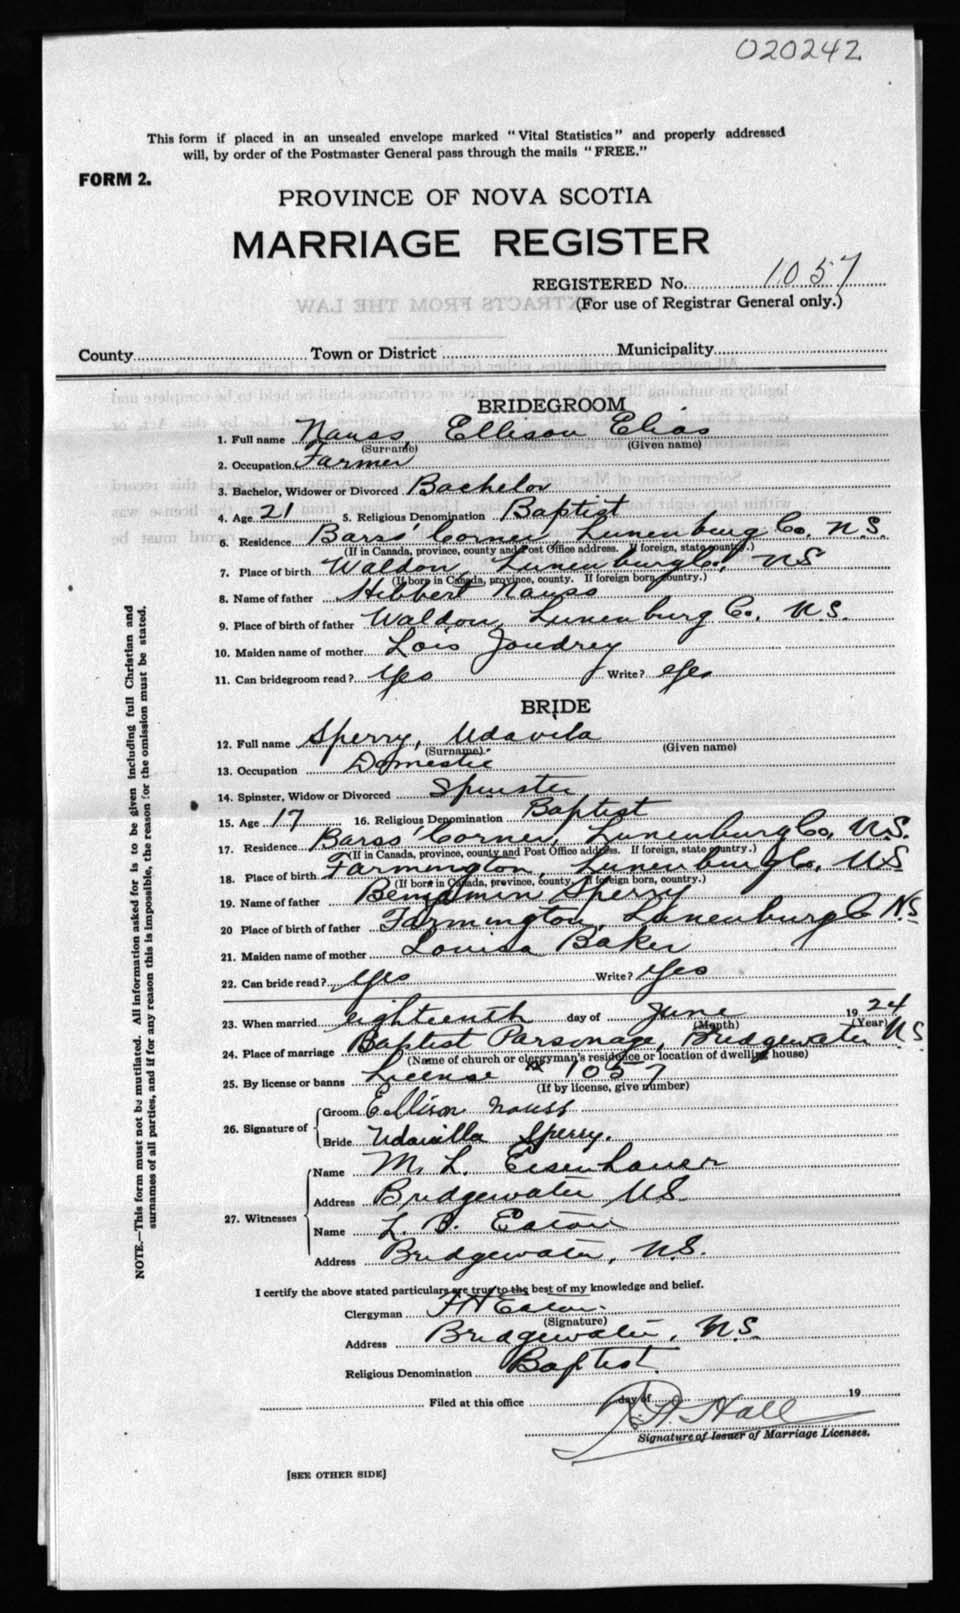 020242
This form if placed in an unsealed envelope marked "Vital Statistics" and properly addressed
will, by order of the Postmaster General pass through the mails "FREE."
FORM 2.
PROVINCE OF NOVA SCOTIA
MARRIAGE REGISTER
REGISTERED No. 1057
(For use of Registrar General only.)
County Town or District Municipality
BRIDEGROOM
1. Full name Nauss, Ellison Elias
(Surname) (Given name)
2. Occupation Farmer
3. Bachelor, Widower or Divorced Bachelor
4. Age 21 5. Religious Denomination Baptist
6. Residence Barss' Corner, Lunenburg Co. N.S.
(If in Canada, province, county and Post Office address. If foreign, state country.)
7. Place of birth Waldon, Lunenburg Co, NS
(If born in Canada, province, county. If foreign born, country.)
8. Name of father Hibbert Nauss
9. Place of birth of father Waldon, Lunenburg Co. N.S.
10. Maiden name of mother Lois Joudrey
11. Can bridegroom read? Yes Write? Yes
BRIDE
12. Full name Sperry, Udavila
(Surname) (Given name)
13. Occupation Domestic
14. Spinster, Widow or Divorced Spinster
15. Age 17 16. Religious Denomination Baptist
17. Residence Barss' Corner, Lunenburg Co, N.S.
(If in Canada, province, county and Post Office address. If foreign, state country.)
18. Place of birth Farmington, Lunenburg Co, NS
(If born in Canada, province, county. If foreign born, country.)
19. Name of father Benjamin Sperry
20 Place of birth of father Farmington, Lunenburg Co N.S
21. Maiden name of mother Louisa Baker
22. Can bride read? Yes Write? Yes
23. When married eighteenth day of June 1924
(Month) (Year)
24. Place of marriage Baptist Parsonage, Bridgewater N.S.
(Name of church or clergyman's residence or location of dwelling house)
25. By license or banns License # 1057
(If by license, give number)
26. Signature of Groom Ellison Nauss
Bride Udavilla Sperry.
27. Witnesses Name M. L. Eisenhauer
Address Bridgewater N.S.
Name L. Eaton
Address Bridgewater, N.S.
I certify the above stated particulars are true to the best of my knowledge and belief.
Clergyman Eaton.
(Signature)
Address Bridgewater, N.S.
Religious Denomination Baptist.
Filed at this office day of 19
Hall
Signature of Issuer of Marriage Licenses.
[SEE OTHER SIDE]
NOTE.—This form must not be mutilated. All information asked for is to be given including full Christian and
surnames of all parties, and if for any reason this is impossible, the reason for the omission must be stated.